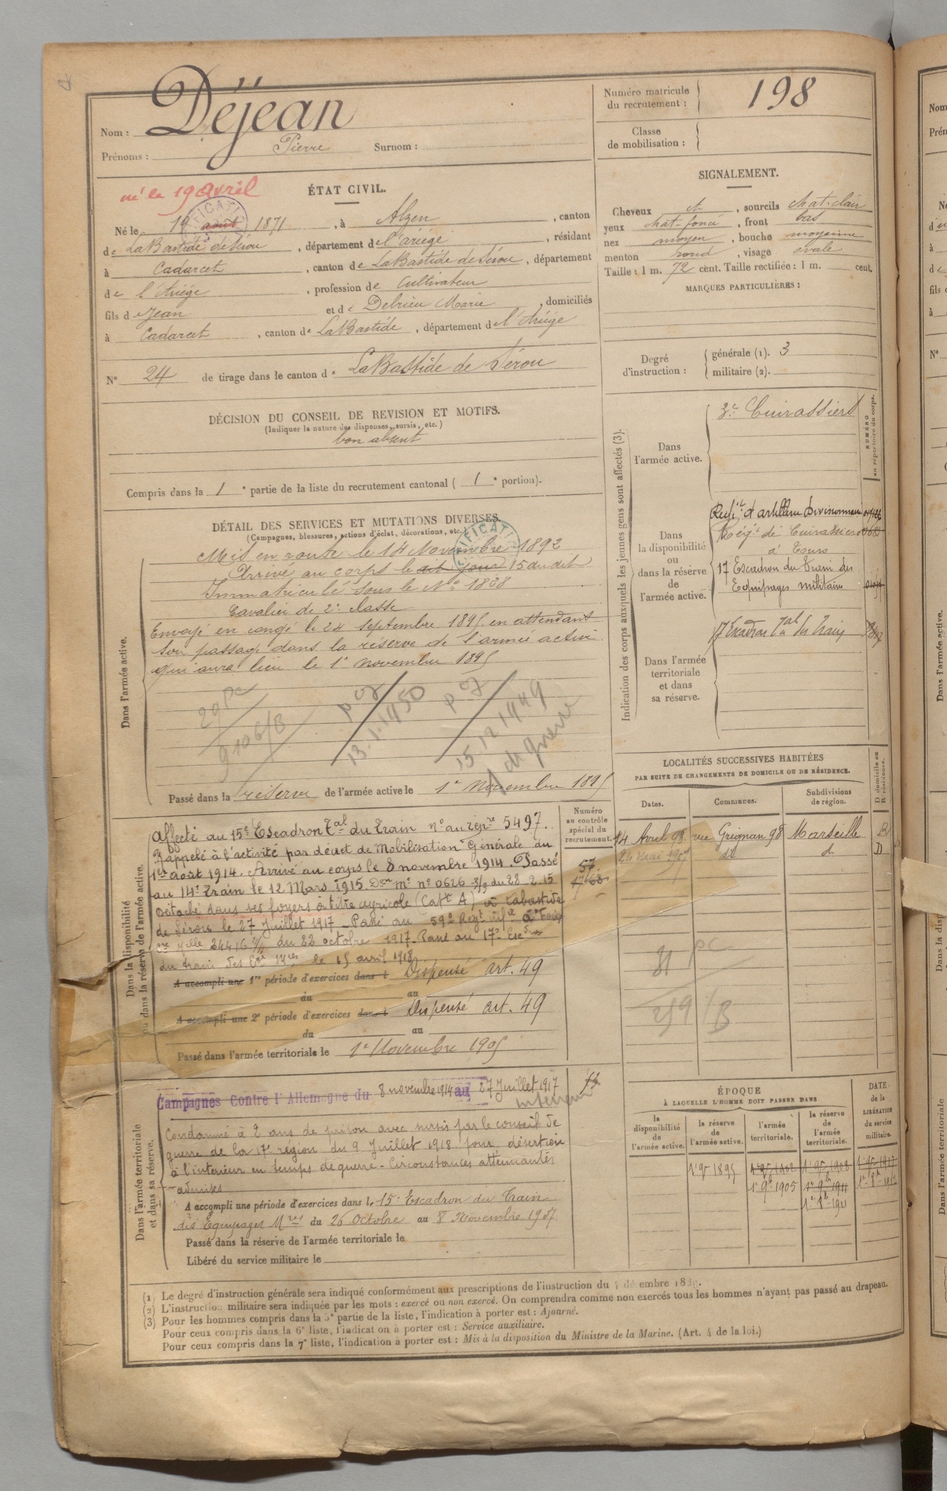 Nom : Déjean
Prénoms : Pierre Surnom :
Numéro matricule du recrutement : 198
Classe de mobilisation :
né le 19 avril
ÉTAT CIVIL.
Né le 19 août 1871, à Alzen, canton
de La Bastide de Sérou, département de l'ariège, résidant
à Cadarcet, canton de La Bastide de Sérou, département
de l'Ariège, profession de Cultivateur
fils de Jean et de Debrieu Marie, domiciliés
à Cadarcet, canton de La Bastide, département de l'Ariège
N° 24 de tirage dans le canton de La Bastide de Sérou
SIGNALEMENT.
Cheveux ch, sourcils chat-clair
yeux chat-foncé, front bas
nez moyen, bouche moyenne
menton rond, visage ovale
Taille : 1 m. 72 cent. Taille rectifiée : 1 m. cent.
MARQUES PARTICULIÈRES :
Degré d'instruction : générale (1). 3
militaire (2).
DÉCISION DU CONSEIL DE REVISION ET MOTIFS.
(Indiquer la nature des dispenses, sursis, etc.)
bon absent
Compris dans la 1e partie de la liste du recrutement cantonal ( 1e portion).
DÉTAIL DES SERVICES ET MUTATIONS DIVERSES.
(Campagnes, blessures, actions d'éclat, décorations, etc.)
Dans l'armée active.
Mis en route le 14 Novembre 1892
Arrivé au corps le dit jour 15 du dit
Immatriculé sous le No 1838
Cavalier de 2e classe
Envoyé en congé le 24 septembre 1895 en attendant
son passage dans la réserve de l'armée active
qui aura lieu le 1er novembre 1895
29 pc
9106/B
13.1.1950
15.12.1949
de guerre
Passé dans la réserve de l'armée active le 1er Novembre 1895
Dans la disponibilité ou dans la réserve de l'armée active.
Numéro au contrôle spécial du recrutement.
Affecté au 15e Escadron Tal du Train n° au repre 5497.
Rappelé à l'activité par décret de Mobilisation Générale du
1er août 1914. Arrivé au corps le 8 novembre 1914. Passé
au 14e Train le 12 Mars 1915. Don Mn n° 0626 3/9 du 28.2.15
Détaché dans ses foyers à titre agricole (Catt A) à Labastide
de Sérou le 27 Juillet 1917 - Passé au 59e Régt infie
24416 du 22 octobre 1917. Passé au 17e Escon
du train des Eqes Mres le 15 avril 1918.
A accompli une 1re période d'exercices dans l Dispensé art. 49
du au
A accompli une 2e période d'exercices dans l Dispensé art. 49
du au
Passé dans l'armée territoriale le 1er Novembre 1905
Dans l'armée territoriale et dans sa réserve.
Campagnes Contre l'Allemagne du 8 novembre 1914 au 27 Juillet 1917
intérieur
Condamné à 2 ans de prison avec sursis par le conseil de
guerre de la 17e région du 9 Juillet 1918 pour désertion
à l'intérieur en temps de guerre - Circonstances atténuantes
admises
A accompli une période d'exercices dans le 15e Escadron du Train
des Equipages Mres du 26 Octobre au 8 Novembre 1907
Passé dans la réserve de l'armée territoriale le
Libéré du service militaire le
Indication des corps auxquels les jeunes gens sont affectés (3).
NUMÉRO au répertoire du corps.
Dans l'armée active.
3e Cuirassiers
Dans la disponibilité ou dans la réserve de l'armée active.
Régit d'artillerie Divisionnaire
Régt de Cuirassiers
à Tours
17 Escadron du Train des
Equipages militaire
Dans l'armée territoriale et dans sa réserve.
17 Escadron Tal du Train
LOCALITÉS SUCCESSIVES HABITÉES
PAR SUITE DE CHANGEMENTS DE DOMICILE OU DE RÉSIDENCE.
Dates. Communes. Subdivisions de région. D. domicile ou R. résidence.
14 Avril 99 rue Grignan 98 Marseille R
d° d° D
81 pc
259/B
ÉPOQUE
À LAQUELLE L'HOMME DOIT PASSER DANS
la disponibilité de l'armée active. la réserve de l'armée active. l'armée territoriale. la réserve de l'armée territoriale. DATE de la LIBÉRATION du service militaire.
1er 9e 1895
1er 9e 1905
(1) Le degré d'instruction générale sera indiqué conformément aux prescriptions de l'instruction du
(2) L'instruction militaire sera indiquée par les mots : exercé ou non exercé. On comprendra comme non exercés tous les hommes n'ayant pas passé au drapeau.
(3) Pour les hommes compris dans la 5e partie de la liste, l'indication à porter est : Ajourné.
Pour ceux compris dans la 6e liste, l'indication à porter est : Service auxiliaire.
Pour ceux compris dans la 7e liste, l'indication à porter est : Mis à la disposition du Ministre de la Marine. (Art. 4 de la loi.)